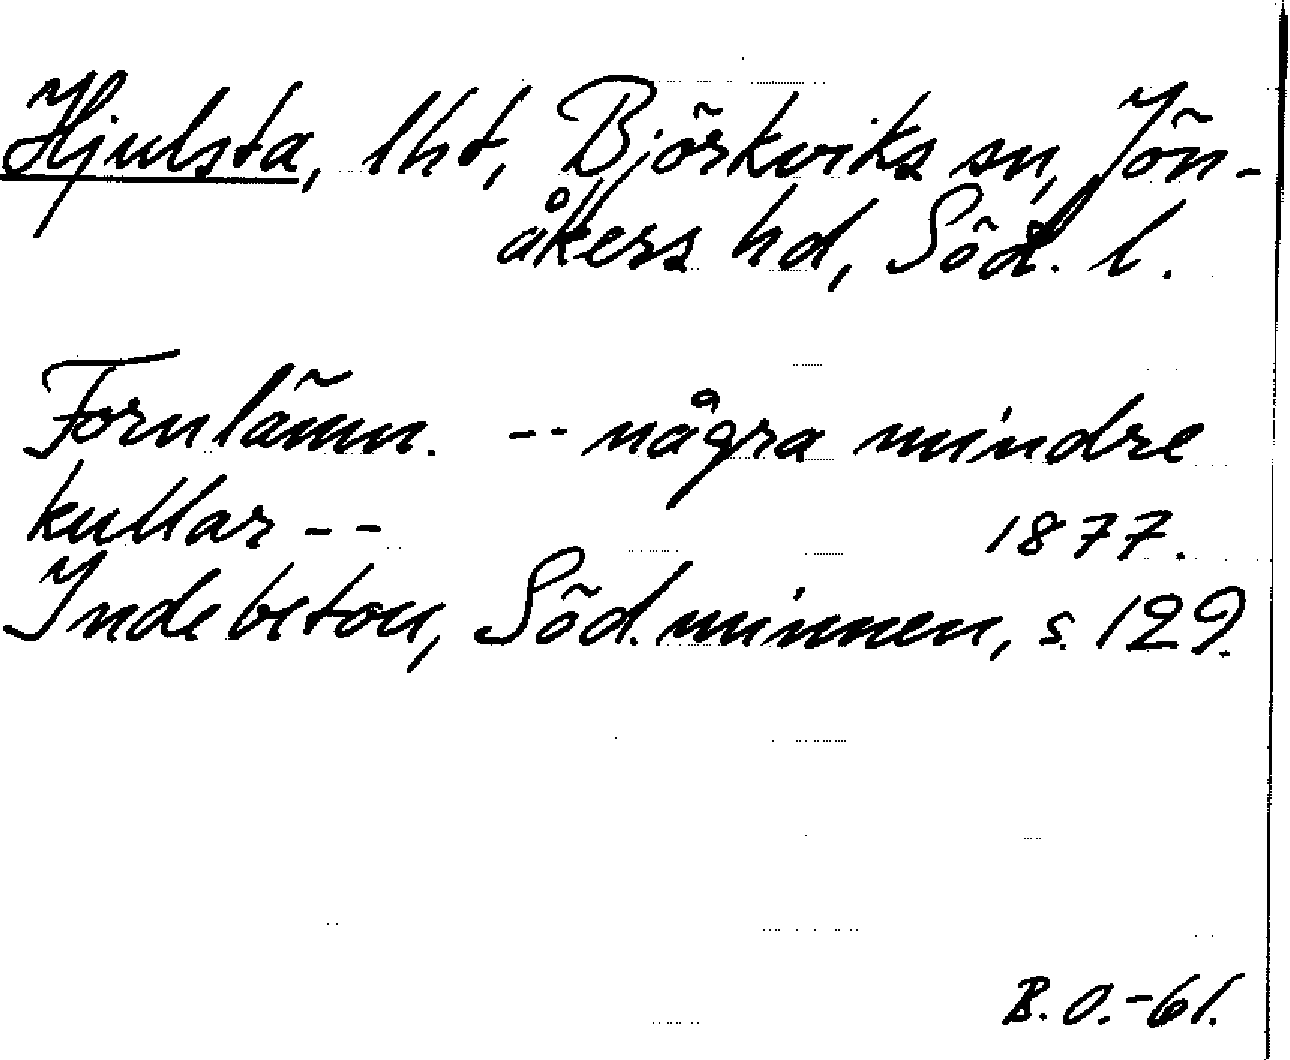 Hjulsta, lht, Björkviks sn, Jön-
åkers hd, Söd. l.
Fornlämn. -- några mindre
kullar -- 1877.
Indebetou, Söd. minnen, s. 129.
B. O. -61.